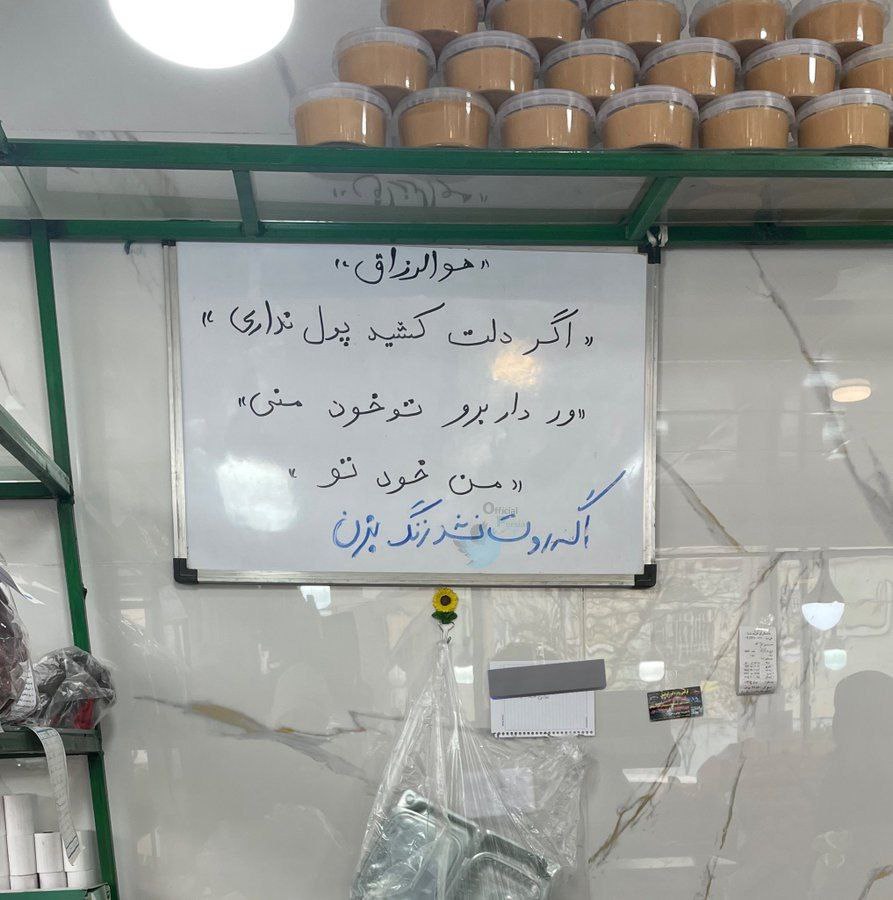 «هوالرزاق»
«اگر دلت کشید پول نداری»
«ور دار برو تو خود منی»
«من خود تو»
اگه روت نشد زنگ بزن
Official